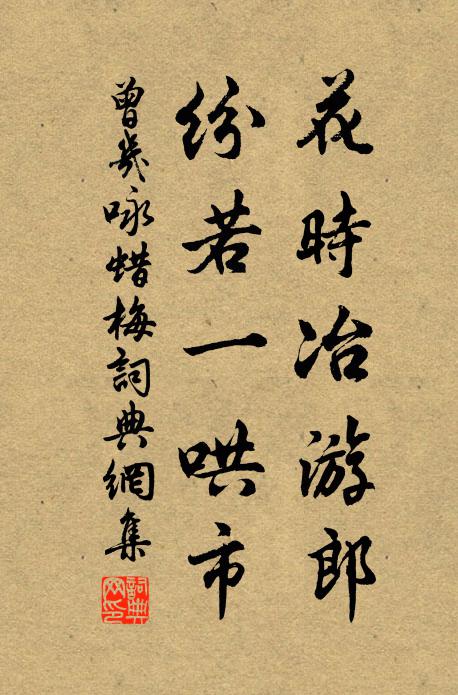 花時冶游郎
紛若一哄市
曾幾咏蜡梅詞典網集
詞典网印